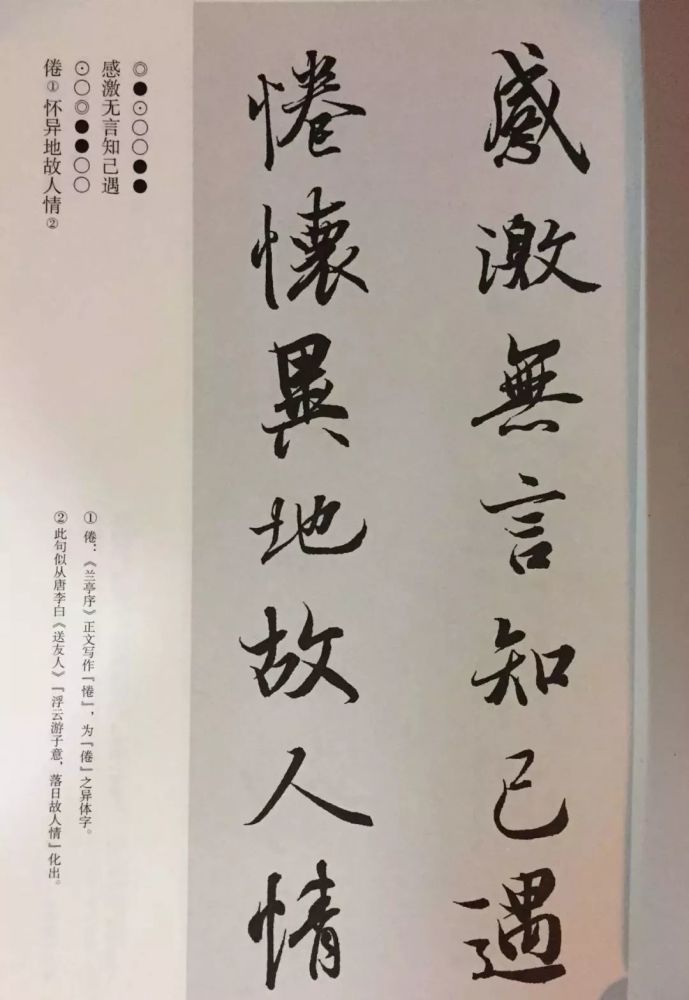 感激無言知己遇
惓懷異地故人情
◎●⊙○○●●
感激无言知己遇
⊙○◎●●○○
倦①怀异地故人情②
① 倦：《兰亭序》正文写作「惓」，为「倦」之异体字。
② 此句似从唐李白《送友人》「浮云游子意，落日故人情」化出。